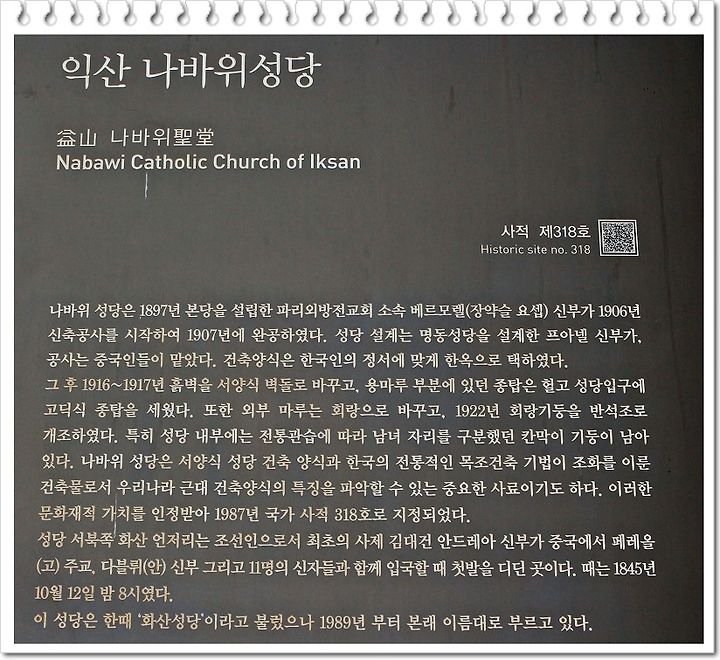 익산 나바위성당
益山 나바위聖堂
Nabawi Catholic Church of Iksan
사적 제318호
Historic site no. 318
나바위 성당은 1897년 본당을 설립한 파리외방전교회 소속 베르모렐(장약슬 요셉) 신부가 1906년
신축공사를 시작하여 1907년에 완공하였다. 성당 설계는 명동성당을 설계한 프아넬 신부가,
공사는 중국인들이 맡았다. 건축양식은 한국인의 정서에 맞게 한옥으로 택하였다.
그 후 1916~1917년 흙벽을 서양식 벽돌로 바꾸고, 용마루 부분에 있던 종탑은 헐고 성당입구에
고딕식 종탑을 세웠다. 또한 외부 마루는 회랑으로 바꾸고, 1922년 회랑기둥을 반석조로
개조하였다. 특히 성당 내부에는 전통관습에 따라 남녀 자리를 구분했던 칸막이 기둥이 남아
있다. 나바위 성당은 서양식 성당 건축 양식과 한국의 전통적인 목조건축 기법이 조화를 이룬
건축물로서 우리나라 근대 건축양식의 특징을 파악할 수 있는 중요한 사료이기도 하다. 이러한
문화재적 가치를 인정받아 1987년 국가 사적 318호로 지정되었다.
성당 서북쪽 화산 언저리는 조선인으로서 최초의 사제 김대건 안드레아 신부가 중국에서 페레올
(고) 주교, 다블뤼(안) 신부 그리고 11명의 신자들과 함께 입국할 때 첫발을 디딘 곳이다. 때는 1845년
10월 12일 밤 8시였다.
이 성당은 한때 '화산성당'이라고 불렀으나 1989년 부터 본래 이름대로 부르고 있다.